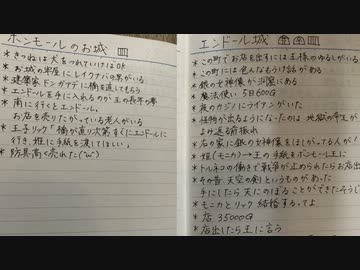 ボンモールのお城
* きつねは犬をつれていけばOK
* お城の牢屋にレイクナバの男がいる
* 建築家ドンガアデに橋を直してもらう
* エンドールを手に入れるのが王の長年の夢
* 南に行くとエンドール。
お店を売りたがっている老人がいる
* 王子リック「橋が直り次第すぐにエンドールに
行き、姫に手紙を渡してほしい」
* 防具高く売れた(^ω^)
エンドール城
* この町でお店を出すには王様のゆるしがいる
* この町には色んなもうけ話がある
* 銀の女神像が洞窟にある
* 魔法使い 5日600G
* 夜のカジノにライアンがいた
* 怪物が出るようになったのは 地獄の帝王が
よみ返る前振れ
* 右の家に銀の女神像をほしがってる人が!
* 姫(モニカ)→王の手紙をボンモール王に
* トルネコの働きで戦争が止められたらお店
* その昔、天空の剣というものがあった
手にしたら天にのぼることができたそうじ
* モニカとリック 結婚するってよ
* 店 35000G
* お店出したら王に言う